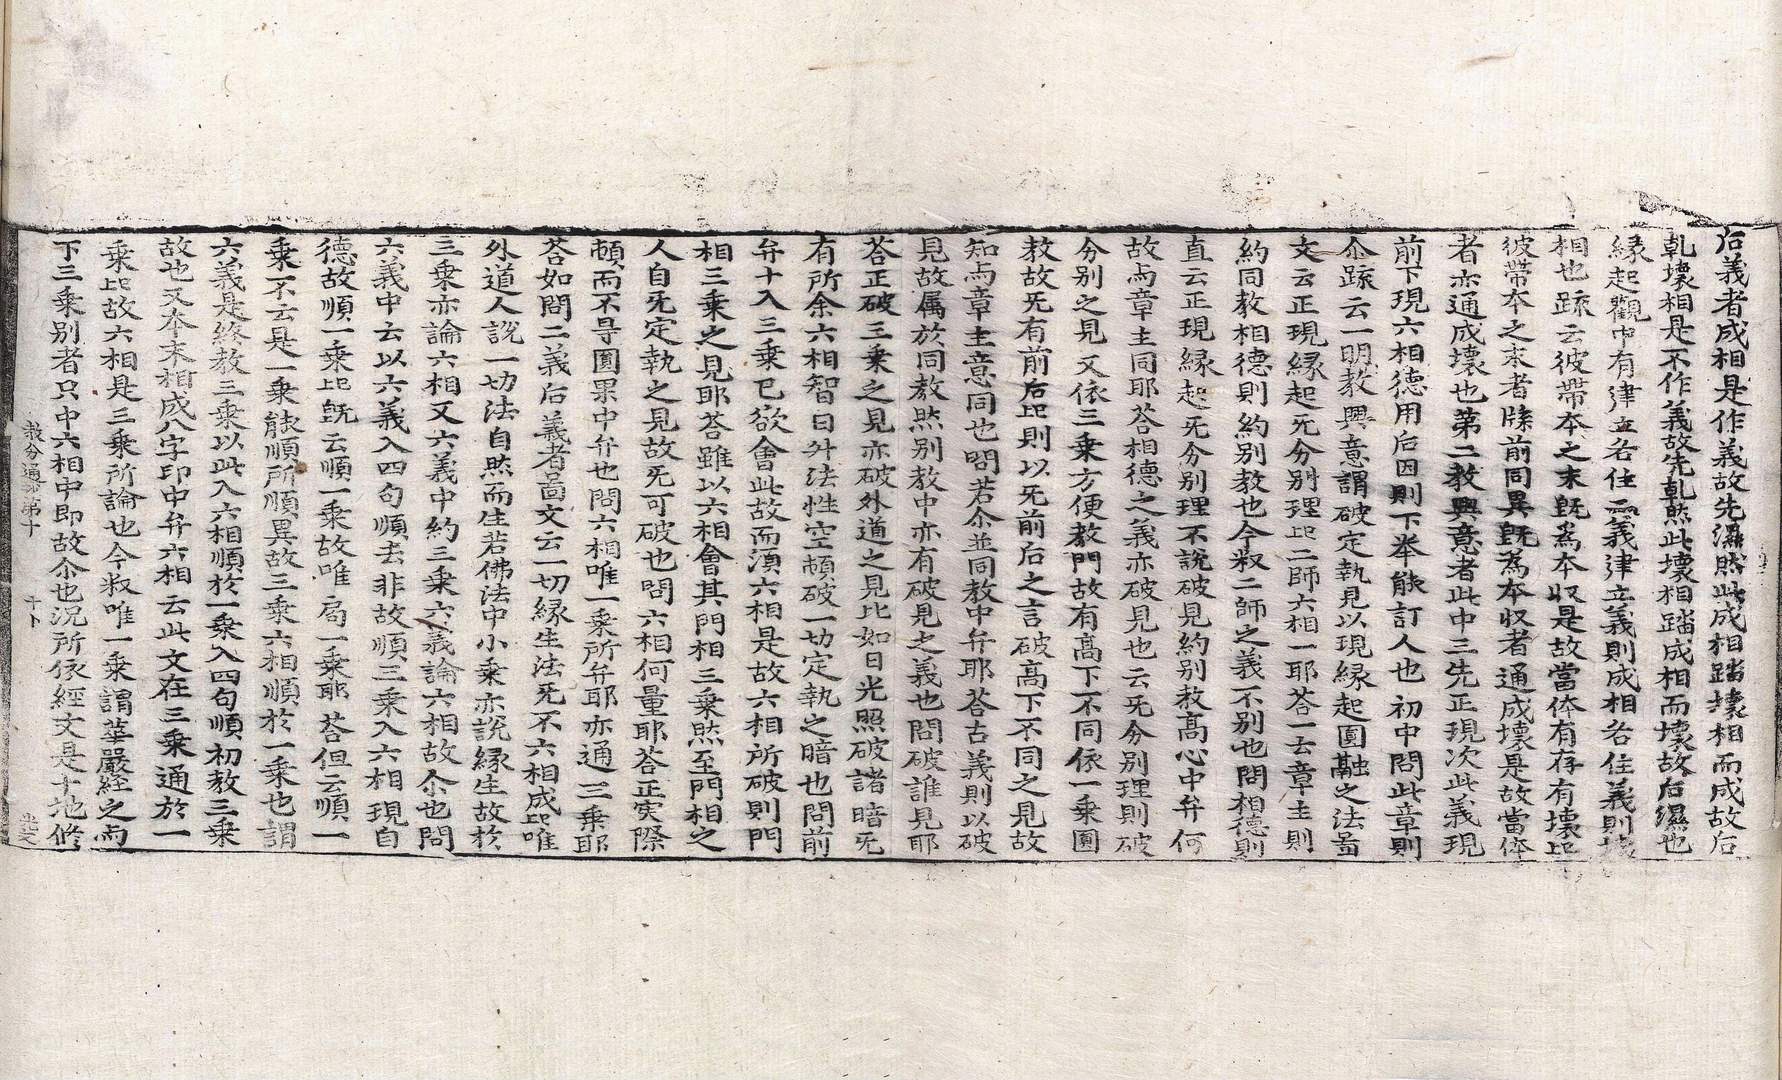 后義者成相是作義故先濕然此成相踏壞相而成故后
乹壞相是不作義故先乹然此壞相踏成相而壞故后濕也
緣起觀中有建立各住二義建立義則成相各住義則壞
相也䟽云彼帶本之末旣爲本收是故當体有存有壞㠯
彼帶本之末者牒前同異旣爲本收者通成壞是故當体
者亦通成壞也第二教興意者此中三先正現次此義現
前下現六相德用后因則下举能訂人也初中問此章則
尒䟽云一明教興意謂破定執見以現緣起圓融之法啚
文云正現緣起无分別理㠯二師六相一耶荅一去章主則
約同教相德則約別教也今叙二師之義不別也問相德則
直云正現緣起无分別理不說破見約別教高心中弁何
故与章主同耶荅相德之義亦破見也云无分別理則破
分別之見又依三乗方便教門故有高下不同依一乗圓
教故无有前后㠯則以无前后之言破高下不同之見故
知与章主意同也問若尒並同教中弁耶荅古義則以破
見故属於同教然別教中亦有破見之義也問破誰見耶
荅正破三乗之見亦破外道之見比如日光照破諸暗无
有所余六相智日舛法性空頓破一切定執之暗也問前
弁十入三乗已欲會此故而湏六相是故六相所破則門
相三乗之見耶荅雖以六相會其門相三乗然至門相之
人自无定執之見故无可破也問六相何量耶荅正実際
頓而不㝵圓果中弁也問六相唯一乗所弁耶亦通三乗耶
荅如問二義后義者啚文云一切緣生法无不六相成㠯唯
外道人說一切法自然而生若佛法中小乗亦說緣生故於
三乗亦論六相又六義中約三乗六義論六相故尒也問
六義中云以六義入四句順去非故順三乗入六相現自
德故順一乗㠯旣云順一乗故唯局一乗耶荅但云順一
乗不云是一乗能順所順異故三乗六相順於一乗也謂
六義是終教三乗以此入六相順於一乗入四句順初教三乗
故也又本末相成八字印中弁六相云此文在三乗通於一
乗㠯故六相是三乗所論也今叙唯一乗謂華嚴経之而
下三乗別者只中六相中即故尒也況所依經文是十地俢
教分通抄第十　十卜